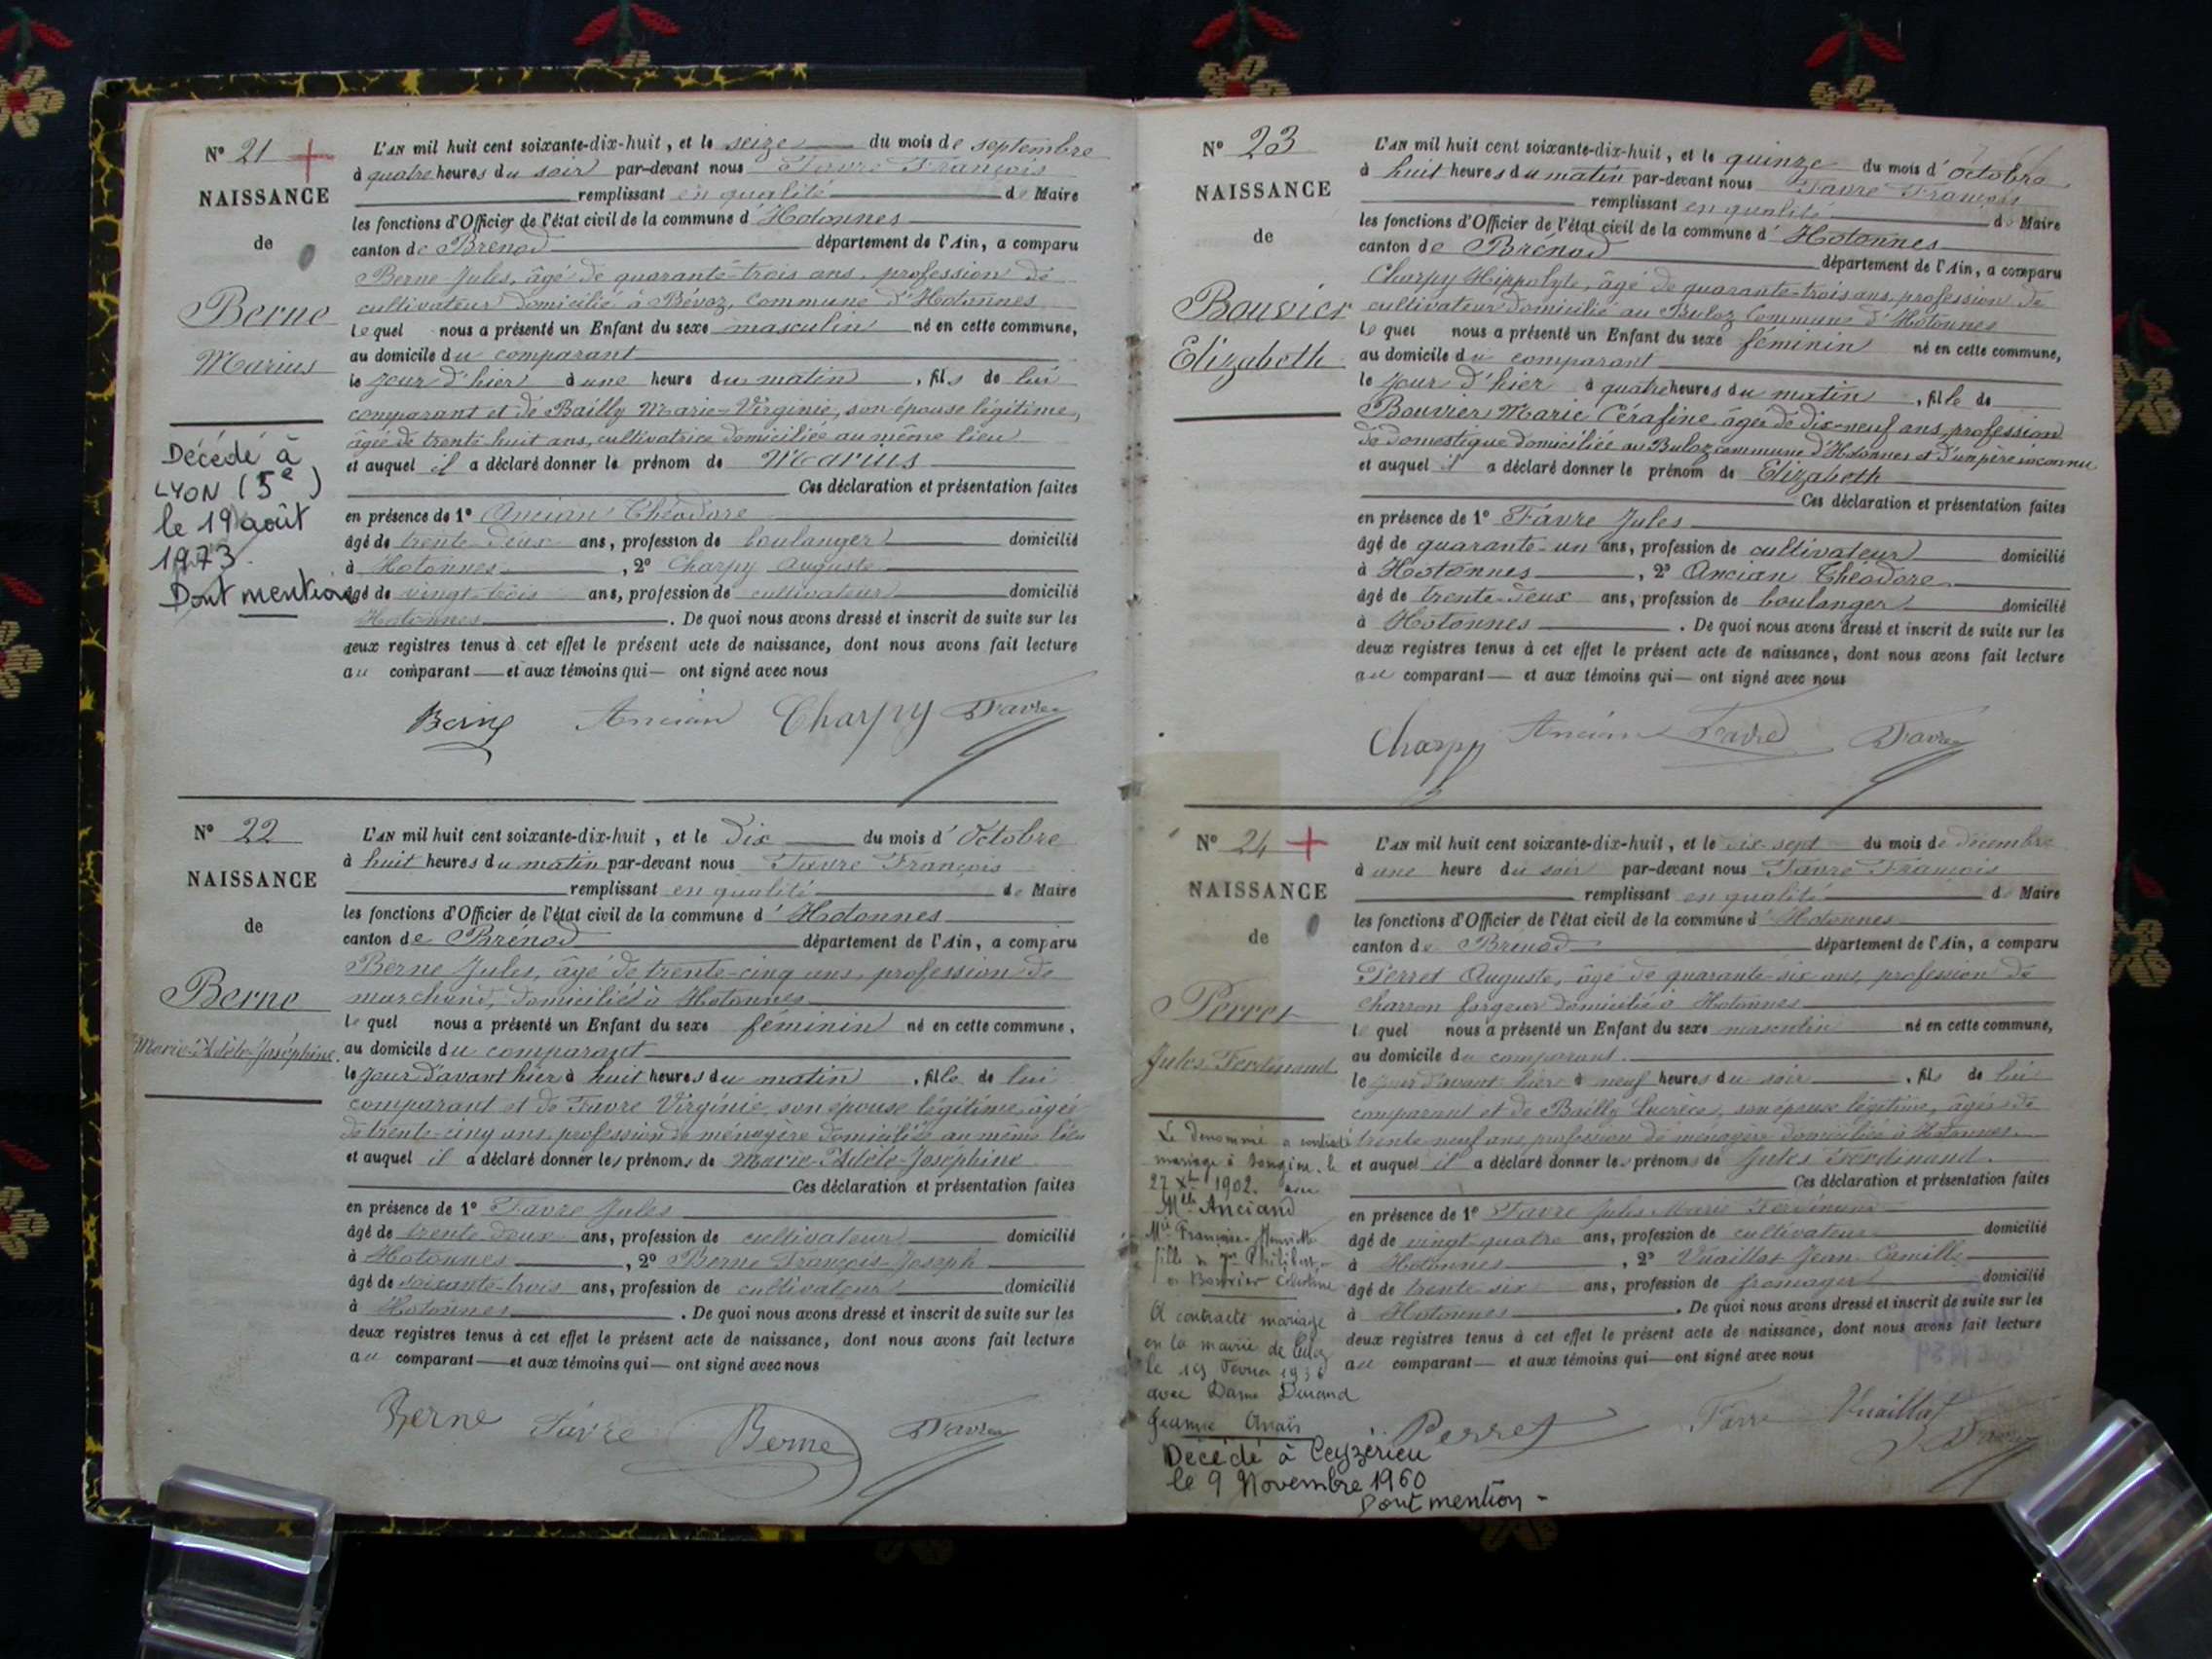 N° 21
NAISSANCE
de
Berne
Marius
Décédé à
LYON (5e)
le 19 août
1973.
Dont mention
L'AN mil huit cent soixante-dix-huit, et le seize du mois de septembre
à quatre heures du soir par-devant nous Favre François
remplissant en qualité de Maire
les fonctions d'Officier de l'état civil de la commune d'Hotonnes
canton de Brenod département de l'Ain, a comparu
Berne Jules, âgé de quarante-trois ans, profession de
cultivateur domicilié à Bévoz, commune d'Hotonnes
lequel nous a présenté un Enfant du sexe masculin né en cette commune,
au domicile du comparant
le jour d'hier à une heure du matin, fils de lui
comparant et de Bailly Marie-Virginie, son épouse légitime,
âgée de trente huit ans, cultivatrice domiciliée au même lieu
et auquel il a déclaré donner le prénom de Marius
Ces déclaration et présentation faites
en présence de 1° Ancian Théodore
âgé de trente-deux ans, profession de boulanger domicilié
à Hotonnes, 2° Charpy Auguste
âgé de vingt-trois ans, profession de cultivateur domicilié
Hotonnes. De quoi nous avons dressé et inscrit de suite sur les
deux registres tenus à cet effet le présent acte de naissance, dont nous avons fait lecture
au comparant et aux témoins qui ont signé avec nous
Berne Ancian Charpy Favre
N° 22
NAISSANCE
de
Berne
Marie-Adèle-Joséphine.
L'AN mil huit cent soixante-dix-huit, et le dix du mois d'Octobre
à huit heures du matin par-devant nous Favre François
remplissant en qualité de Maire
les fonctions d'Officier de l'état civil de la commune d'Hotonnes
canton de Brénod département de l'Ain, a comparu
Berne Jules, âgé de trente-cinq ans, profession de
marchand, domicilié à Hotonnes
lequel nous a présenté un Enfant du sexe féminin né en cette commune,
au domicile du comparant
le jour d'avant hier à huit heures du matin, fille de lui
comparant et de Favre Virginie, son épouse légitime, âgée
de trente-cinq ans, profession de ménagère domiciliée au même lieu
et auquel il a déclaré donner les prénoms de Marie-Adèle-Joséphine
Ces déclaration et présentation faites
en présence de 1° Favre Jules
âgé de trente deux ans, profession de cultivateur domicilié
à Hotonnes, 2° Berne François-Joseph
âgé de soixante-trois ans, profession de cultivateur domicilié
à Hotonnes. De quoi nous avons dressé et inscrit de suite sur les
deux registres tenus à cet effet le présent acte de naissance, dont nous avons fait lecture
au comparant et aux témoins qui ont signé avec nous
Berne Favre Berne Favre
N° 23
NAISSANCE
de
Bouvier
Elizabeth
L'AN mil huit cent soixante-dix-huit, et le quinze du mois d'Octobre
à huit heures du matin par-devant nous Favre François
remplissant en qualité de Maire
les fonctions d'Officier de l'état civil de la commune d'Hotonnes
canton de Brenod département de l'Ain, a comparu
Charpy Hippolyte, âgé de quarante-trois ans, profession de
cultivateur domicilié au Buloz commune d'Hotonnes
lequel nous a présenté un Enfant du sexe féminin né en cette commune,
au domicile du comparant
le jour d'hier à quatre heures du matin, fille de
Bouvier Marie Cérafine âgée de dix-neuf ans, profession
de domestique domiciliée au Buloz commune d'Hotonnes et d'un père inconnu
et auquel il a déclaré donner le prénom de Elizabeth
Ces déclaration et présentation faites
en présence de 1° Favre Jules
âgé de quarante-un ans, profession de cultivateur domicilié
à Hotonnes, 2° Ancian Théodore
âgé de trente-deux ans, profession de boulanger domicilié
à Hotonnes. De quoi nous avons dressé et inscrit de suite sur les
deux registres tenus à cet effet le présent acte de naissance, dont nous avons fait lecture
au comparant et aux témoins qui ont signé avec nous
Charpy Ancian Favre Favre
N° 24
NAISSANCE
de
Perret
Jules Ferdinand
Le dénommé a contracté
mariage à Songieu le
27 Xbre 1902 avec
Melle Anciand
Mie Françoise-Henriette
fille de Philibert
et Bouvier
A contracté mariage
en la mairie de Culoz
le 19 Février 1936
avec Dame Durand
Jeanne Anaïs
Décédé à Ceyzérieu
le 9 Novembre 1960
Dont mention -
L'AN mil huit cent soixante-dix-huit, et le dix-sept du mois de décembre
à une heure du soir par-devant nous Favre François
remplissant en qualité de Maire
les fonctions d'Officier de l'état civil de la commune d'Hotonnes
canton de Brenod département de l'Ain, a comparu
Perret Auguste, âgé de quarante-six ans, profession de
charron forgeur domicilié à Hotonnes
lequel nous a présenté un Enfant du sexe masculin né en cette commune,
au domicile du comparant.
le jour d'avant hier à neuf heures du soir, fils de lui
comparant et de Bailly Lucrèce, son épouse légitime, âgée de
trente-neuf ans profession de ménagère domiciliée à Hotonnes.
et auquel il a déclaré donner les prénoms de Jules Ferdinand.
Ces déclaration et présentation faites
en présence de 1° Favre Jules Marie Ferdinand
âgé de vingt-quatre ans, profession de cultivateur domicilié
à Hotonnes, 2° Vuaillat Jean Camille
âgé de trente-six ans, profession de fromager domicilié
à Hotonnes. De quoi nous avons dressé et inscrit de suite sur les
deux registres tenus à cet effet le présent acte de naissance, dont nous avons fait lecture
au comparant et aux témoins qui ont signé avec nous
Perret Favre Vuaillat Favre